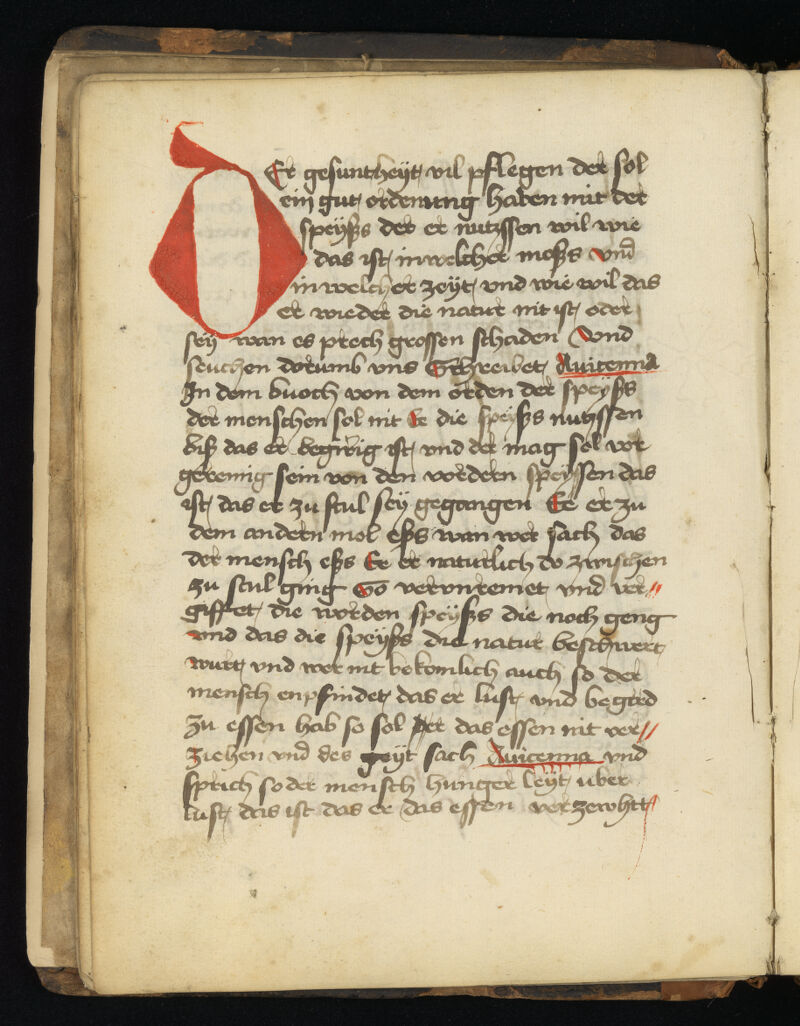 DEr gesuntheyt vil pflegen der sol
ein gut ordenung haben mit der
speyßs der er nutzssen wil wie
das ist in welcher moßs vnd
in welcher zeyt vnd wie vil das
er wieder die natur nit ist oder
sey wan es prech grossen schaden Vnd
seuchen dorumb vns Schreibet Auicenna
In dem buoch von dem orden der speyßs
der menschen sol nit Ee die speyßs nutzssen
biß das er begirig ist vnd der mag sol vor
gereinig sein von den vordern speyssen das
ist das er zu stul sey gegangen Ee er zu
dem andern mol eßs wan wer sach das
der mensch eßs Ee er naturlich do zwischen
zu stul ging So vervnreinet vnd ver//
gifftet die worden speyßs die noch geng
vnd das die speyßs die natur beschwert
wurt vnd wer nit bekomlich auch so der
mensch enpfindet das er lust vnd begerd
zu essen hab so sol er das essen nit ver//
ziehen vnd des geyt sach Auicenna vnd
sprich so der mensch hunger leyt uber
lust das ist das er das essen verzewhtt